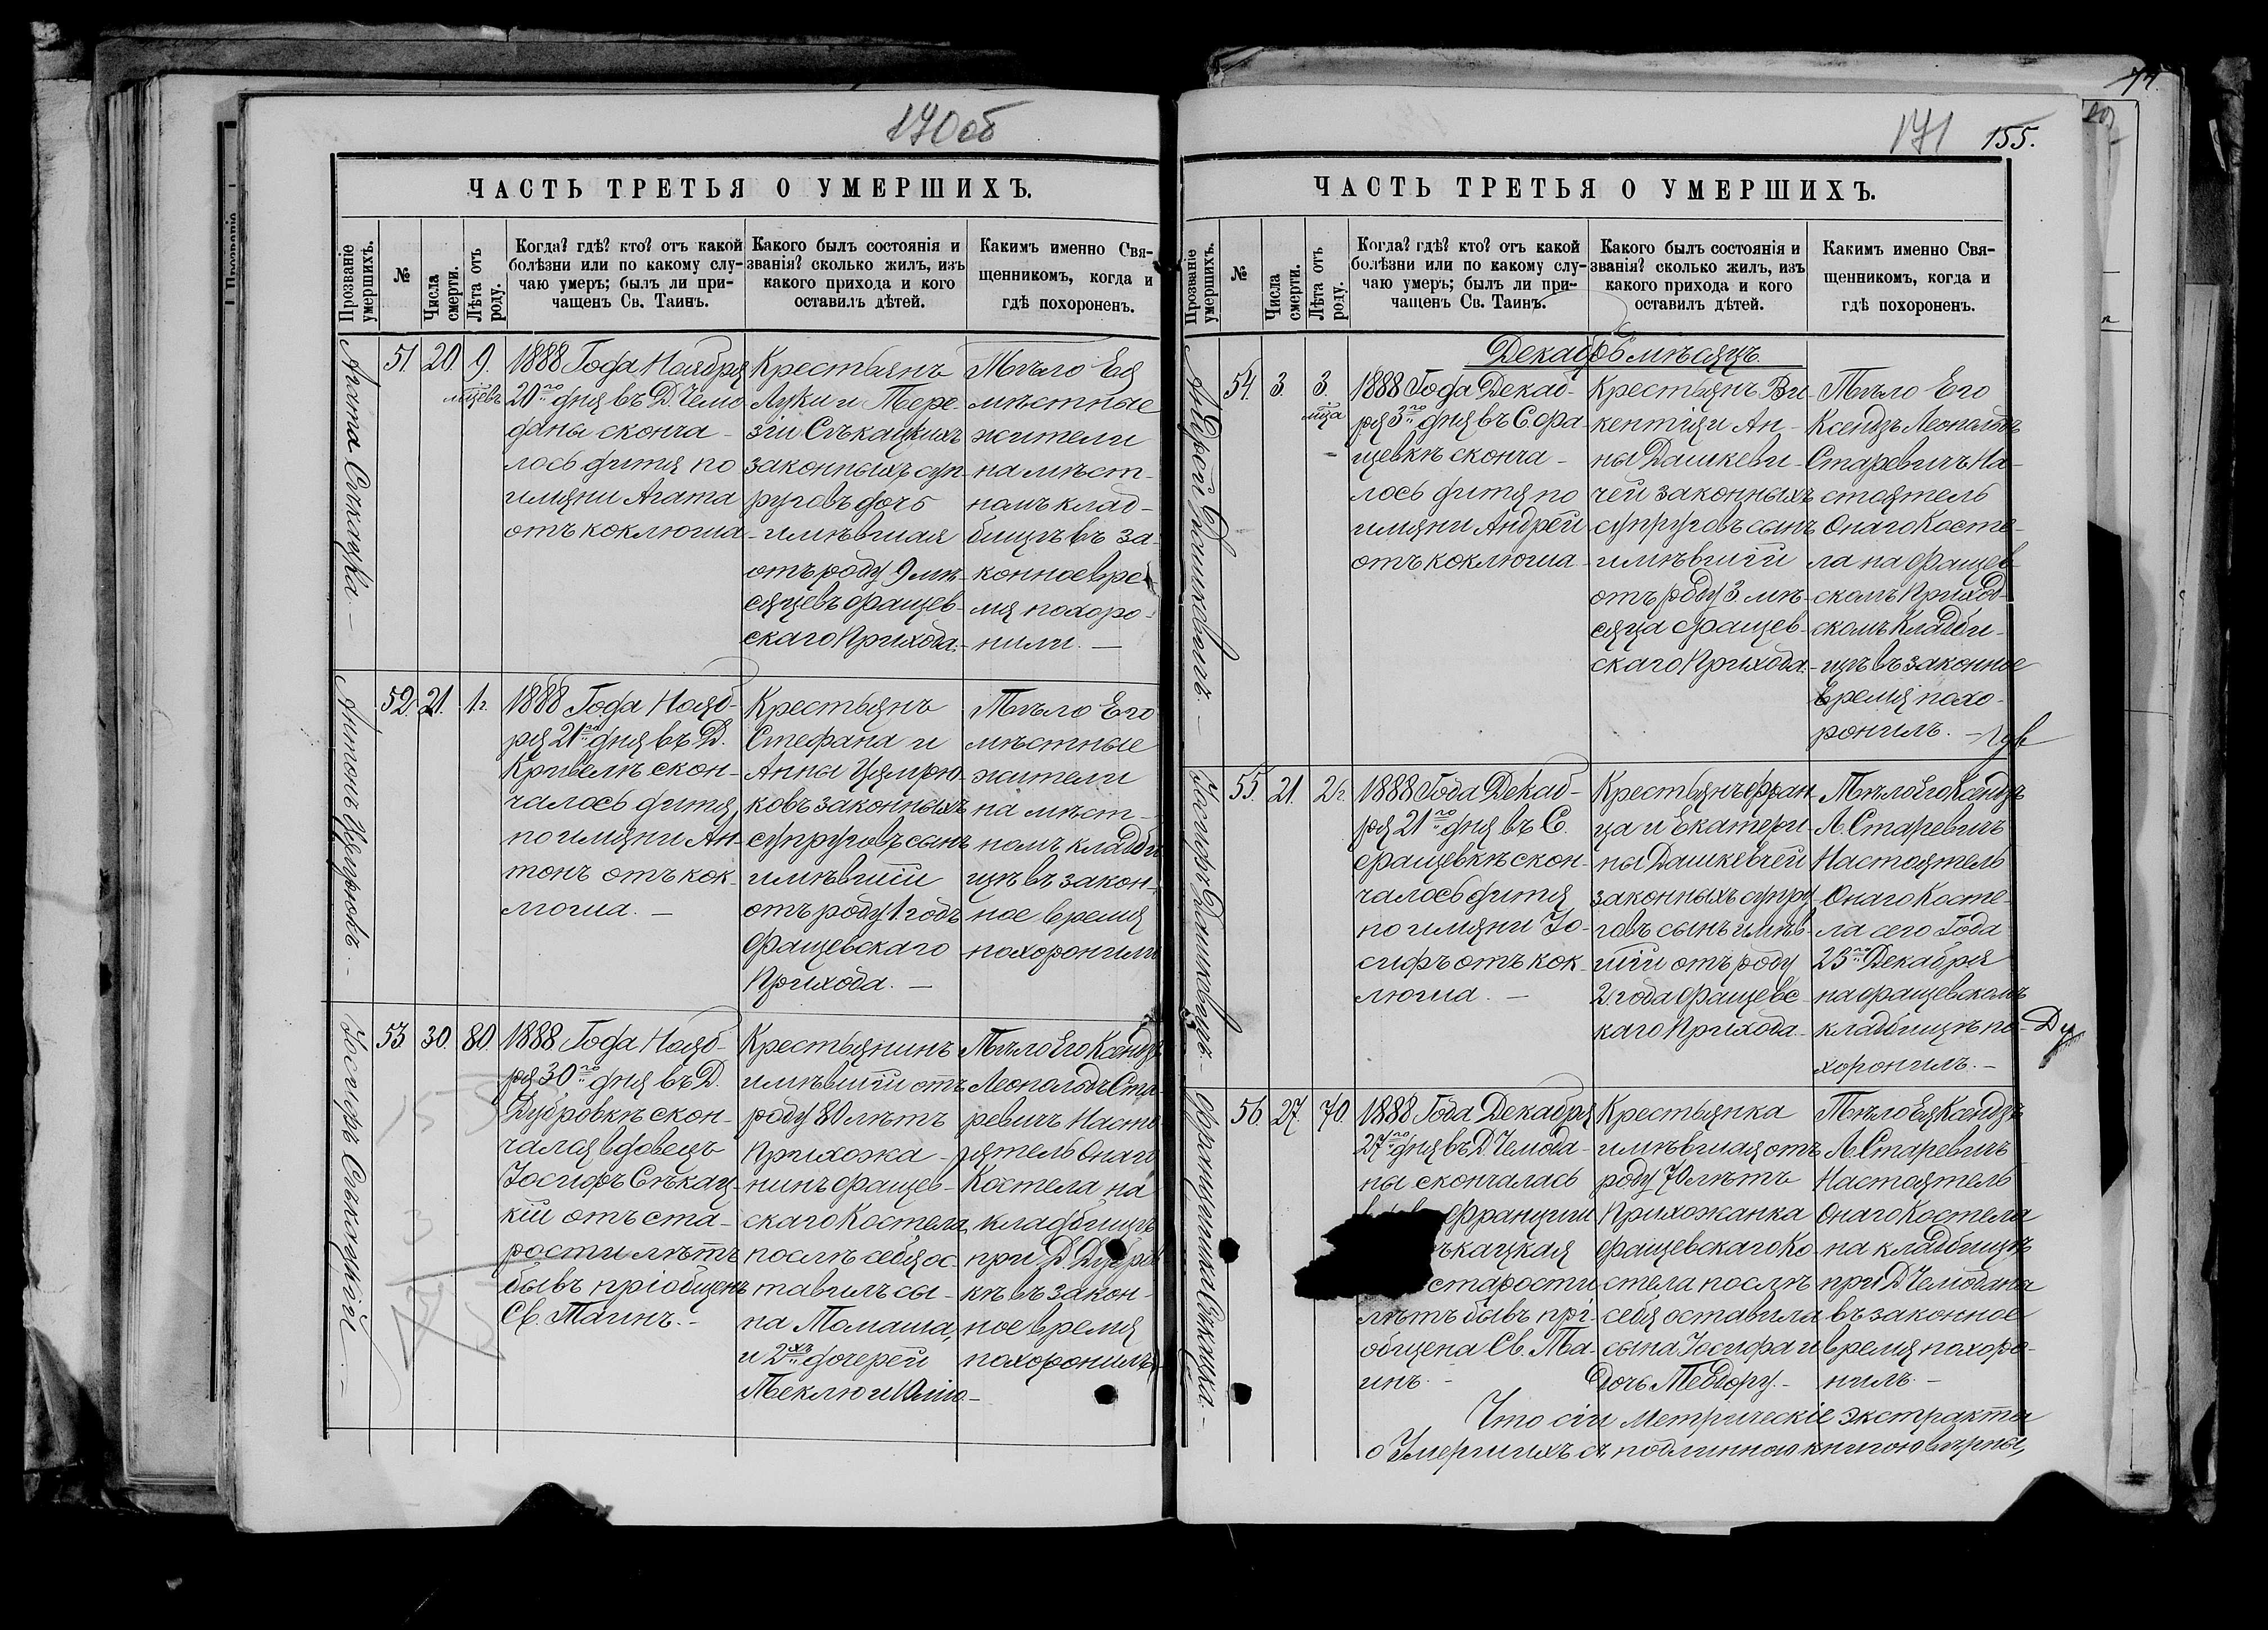 170 об
ЧАСТЬ ТРЕТЬЯ О УМЕРШИХЪ.
Прозваніе умершихъ.
№
Числа смерти.
Лѣта отъ роду.
Когда? гдѣ? кто? отъ какой
болѣзни или по какому слу-
чаю умеръ; былъ ли при-
чащенъ Св. Таинъ.
Какого былъ состоянія и
званія? сколько жилъ, изъ
какого прихода и кого
оставилъ дѣтей.
Какимъ именно Свя-
щенникомъ, когда и
гдѣ похороненъ.
51. 20. 9.
мѣсцевъ
1888 Года Ноября
20го дня въ Д. Чемо
даны сконча-
лось дитя по
имяни Агата
отъ коклюша
Крестьянъ
Луки и Тере-
зіи Сѣкацкихъ
законныхъ суп-
руговъ дочь
имѣвшая
отъ роду 9 мѣ-
сяцевъ Фащев-
скаго Прихода.
Тѣло Ея
мѣстные
жители
на мѣст-
номъ клад-
бищѣ въ за-
конное вре-
мя похоро-
нили.
52. 21. 1г.
1888 Года Нояб-
ря 21го дня въ Д.
Кривелѣ скон-
чалось дитя
по имяни Ан-
тонъ отъ кок-
люша.
Крестьянъ
Стефана и
Анны Цямрю-
ковъ законныхъ
супруговъ сынъ
имѣвшій
отъ роду 1. годъ
Фащевскаго
Прихода.
Тѣло Его
мѣстные
жители
на мѣст-
номъ кладби
щѣ въ закон-
ное время
похоронили
Іосифъ Сѣкацкій
53. 30. 80.
1888 Года Нояб-
ря 30го дня въ Д.
Дубровкѣ скон-
чался вдовецъ
Іосифъ Сѣкац-
кій отъ ста-
рости лѣтъ
бывъ пріобщенъ
Св. Таинъ.
Крестьянинъ
имѣвшій отъ
роду 80 лѣтъ
Прихожа-
нинъ Фащев-
скаго Костела,
послѣ себя ос-
тавилъ сы-
на Томаша,
и 2хъ дочерей
Теклю и Юлію.
Тѣло Его Ксендзъ
Леопольдъ Ста-
ревичъ Насто-
ятель Онаго
Костела на
кладбищѣ
при Д. Дубров
кѣ въ закон-
ное время
похоронилъ
171 155.
ЧАСТЬ ТРЕТЬЯ О УМЕРШИХЪ.
Прозваніе умершихъ.
№
Числа смерти.
Лѣта отъ роду.
Когда? гдѣ? кто? отъ какой
болѣзни или по какому слу-
чаю умеръ; былъ ли при-
чащенъ Св. Таинъ.
Какого былъ состоянія и
званія? сколько жилъ, изъ
какого прихода и кого
оставилъ дѣтей.
Какимъ именно Свя-
щенникомъ, когда и
гдѣ похороненъ.
Декабрь мѣсяцъ.
Андрей Дашкевичъ.
54. 3. 3.
мца
1888 Года Декаб-
ря 3го дня въ С. Фа-
щевкѣ сконча-
лось дитя по
имяни Андрей
отъ коклюша
Крестьянъ Ви-
кентія и Ан-
ны Дашкеви-
чей законныхъ
супруговъ сынъ
имѣвшій
отъ роду 3 мѣ-
сяца Фащев-
скаго Прихода.
Тѣло Его
Ксендзъ Леопольдъ
Старевичъ На-
стоятель
Онаго Косте-
ла на Фащев-
скомъ Приход-
скомъ Кладби-
щѣ въ законное
время похо-
ронилъ.
Іосифъ Дашкевичъ
55. 21. 2г.
1888 Года Декаб-
ря 21го дня въ С.
Фащевкѣ скон-
чалось дитя
по имяни Іо-
сифъ отъ кок-
люша.
Крестьянъ Фран-
ца и Екатери-
ны Дашкевичей
законныхъ супру
говъ сынъ имѣв-
шій отъ роду
2 года Фащевс-
каго Прихода.
Тѣло Его Ксендзъ
Л. Старевичъ
Настоятель
Онаго Косте-
ла сего Года
23го Декабря
на Фащевскомъ
кладбищѣ по-
хоронилъ.
56. 27. 70.
1888 Года Декабря
27го дня въ Д. Чемода-
ны скончалась
Франциш
ѣкацкая
старости
лѣтъ бывъ прі-
общена Св. Та-
инъ.
Крестьянка
имѣвшая отъ
роду 70 лѣтъ
Прихожанка
Фащевскаго Ко-
стела послѣ
себя оставила
сына Іосифа и
дочь Теодору.
Тѣло Ея Ксендзъ
Л. Старевичъ
Настоятель
Онаго Костела
на кладбищѣ
при Д. Чемоданы
въ законное
время похоро-
нилъ.
Что сіи метрическіе экстракты
о Умершихъ съ подлинною книгою вѣрны,